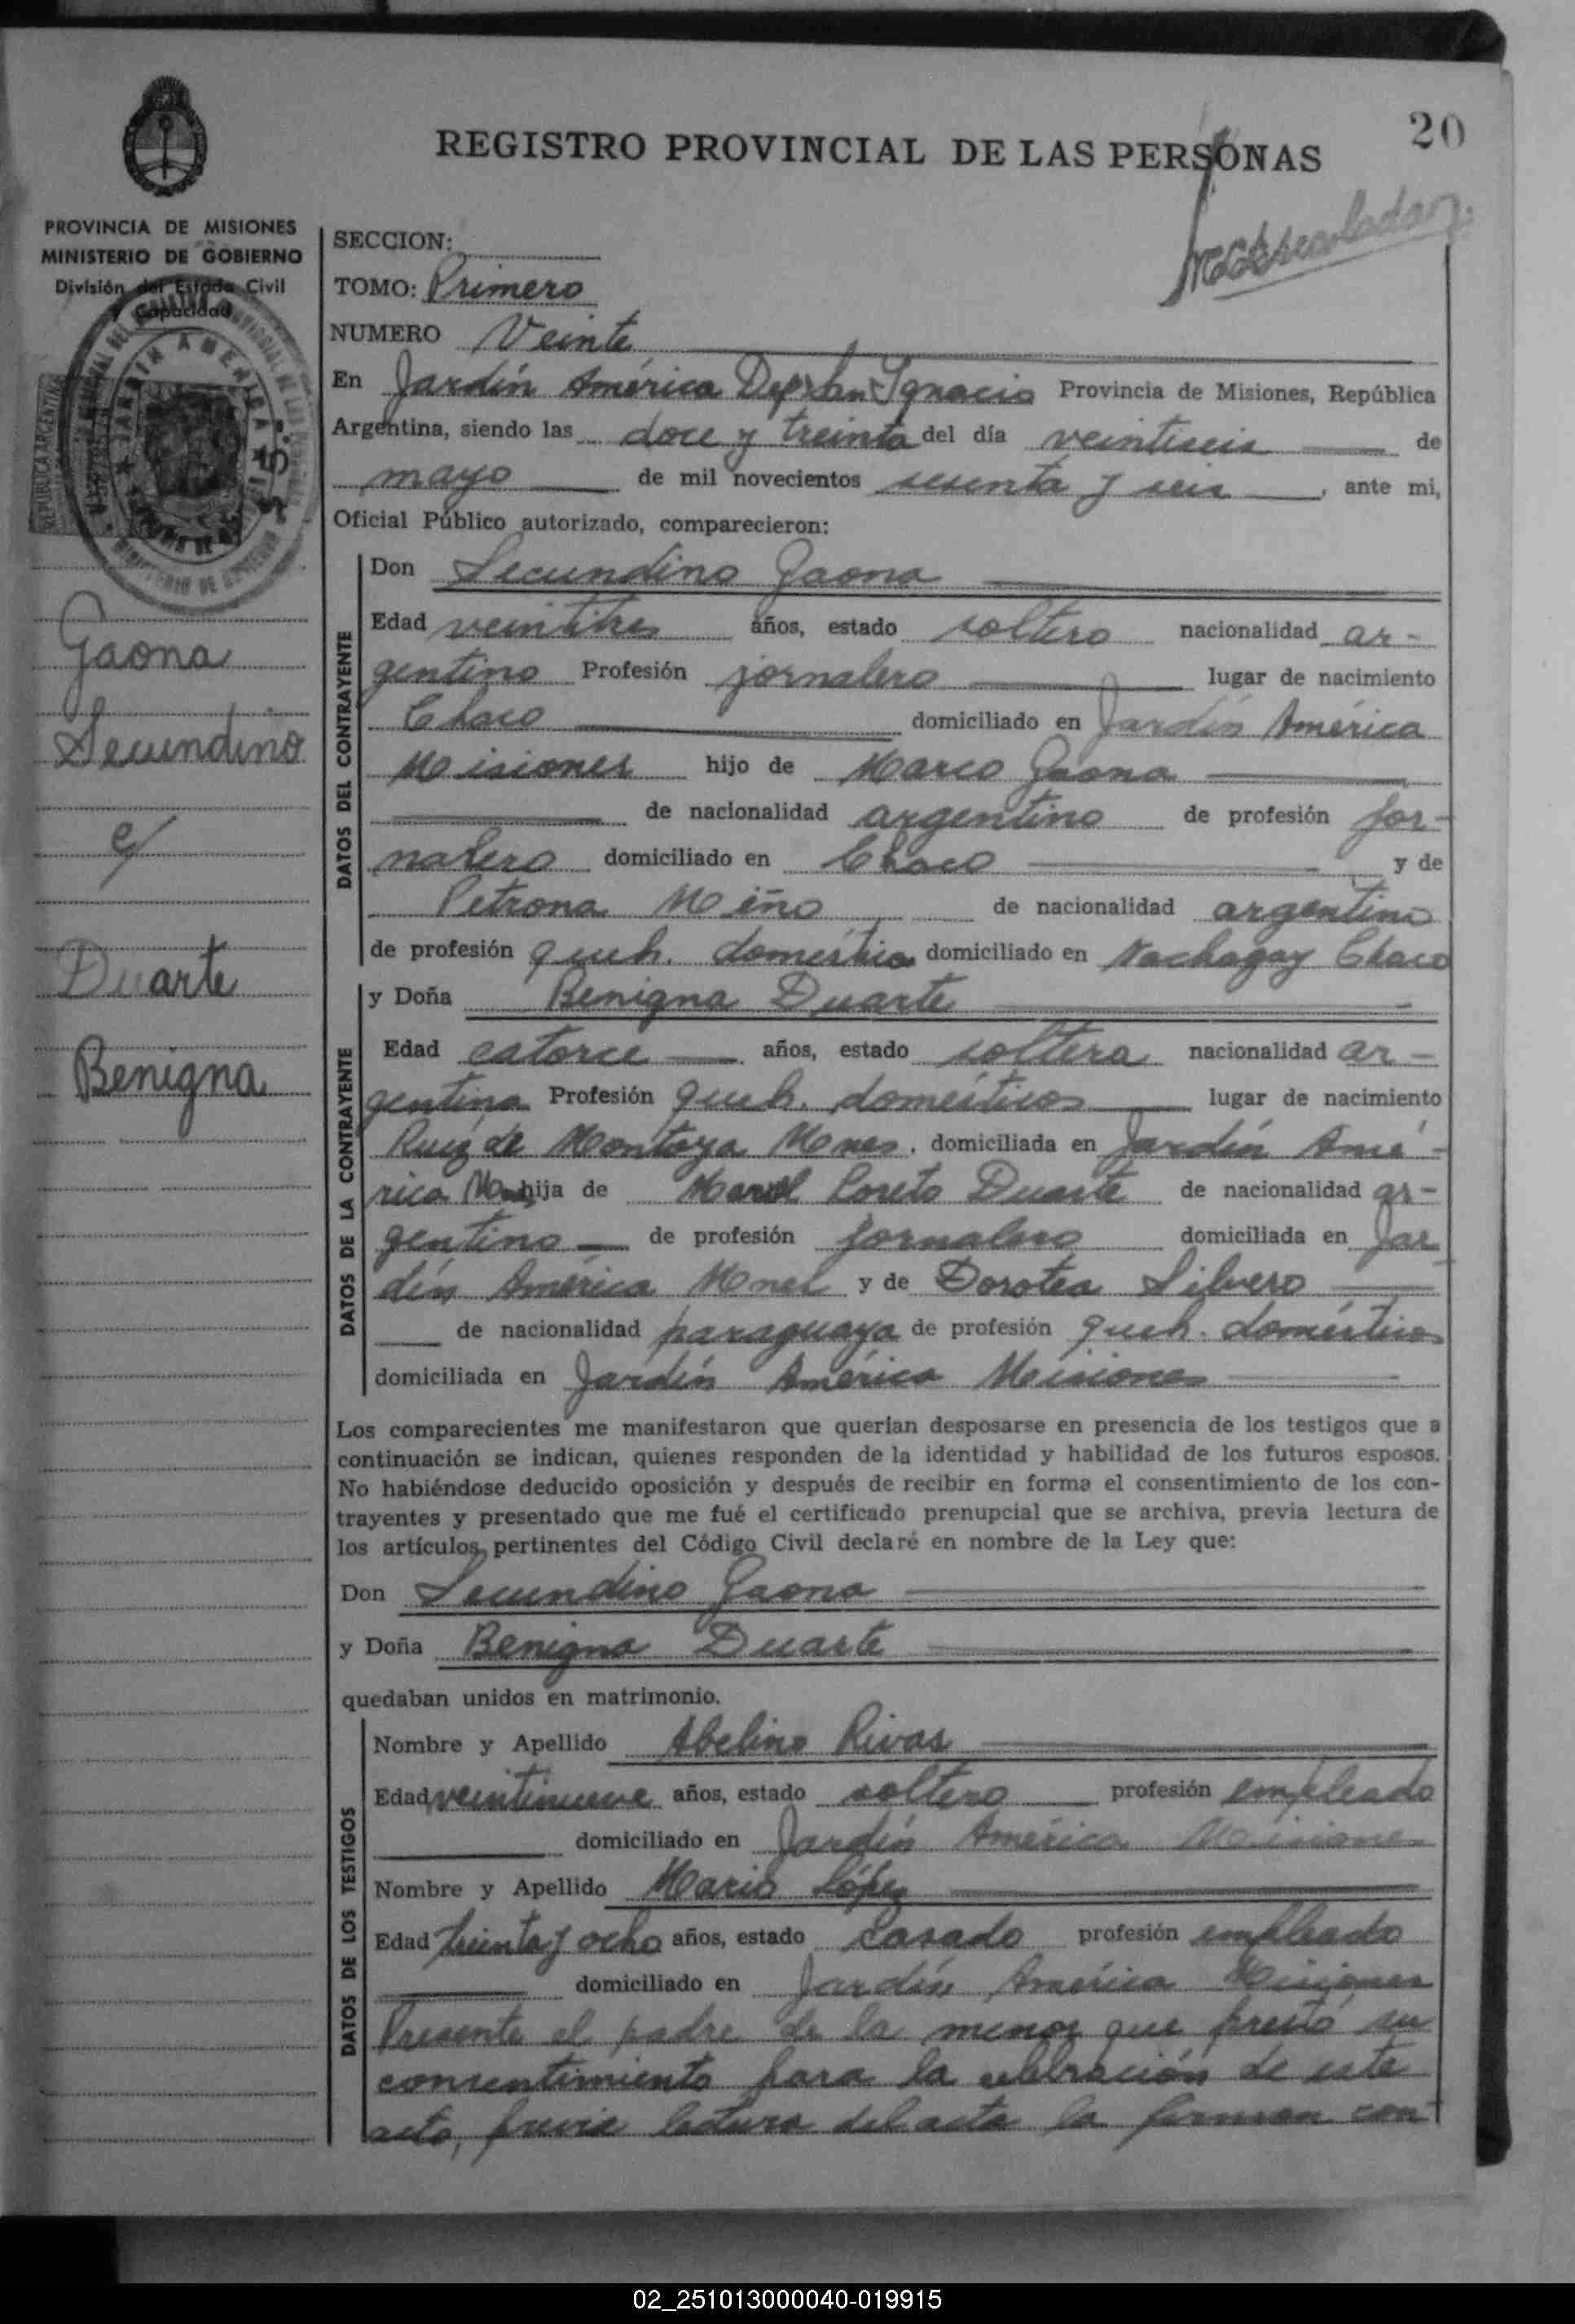 20
REGISTRO PROVINCIAL DE LAS PERSONAS
PROVINCIA DE MISIONES
MINISTERIO DE GOBIERNO
División del Estado Civil
y Capacidad
REPUBLICA ARGENTINA
JARDIN AMERICA
MINISTERIO DE GOBIERNO
Gaona
Secundino
c/
Duarte
Benigna
SECCION:
TOMO: Primero
NUMERO Veinte
En Jardín América Dep. San Ignacio Provincia de Misiones, República
Argentina, siendo las doce y treinta del día veintiseis de
mayo de mil novecientos sesenta y seis, ante mi,
Oficial Público autorizado, comparecieron:
DATOS DEL CONTRAYENTE
Don Secundino Gaona
Edad veintitres años, estado soltero nacionalidad ar-
gentino Profesión jornalero lugar de nacimiento
Chaco domiciliado en Jardín América
Misiones hijo de Marco Gaona
de nacionalidad argentino de profesión jor-
nalero domiciliado en Chaco y de
Petrona Meño de nacionalidad argentina
de profesión queh. domestico domiciliado en Machagay Chaco
DATOS DE LA CONTRAYENTE
y Doña Benigna Duarte
Edad catorce años, estado soltera nacionalidad ar-
gentina Profesión queh. domésticos lugar de nacimiento
Ruiz de Montoya Mnes. domiciliada en Jardín Amé-
rica hija de Loreto Duarte de nacionalidad ar-
gentino de profesión jornalero domiciliada en Jar
dín América y de Dorotea Silvero
de nacionalidad paraguaya de profesión queh. domésticos
domiciliada en Jardín América Misiones
Los comparecientes me manifestaron que querían desposarse en presencia de los testigos que a
continuación se indican, quienes responden de la identidad y habilidad de los futuros esposos.
No habiéndose deducido oposición y después de recibir en forma el consentimiento de los con-
trayentes y presentado que me fué el certificado prenupcial que se archiva, previa lectura de
los artículos pertinentes del Código Civil declaré en nombre de la Ley que:
Don Secundino Gaona
y Doña Benigna Duarte
quedaban unidos en matrimonio.
DATOS DE LOS TESTIGOS
Nombre y Apellido Abelino Rivas
Edad veintinueve años, estado soltero profesión empleado
domiciliado en Jardín América Misiones
Nombre y Apellido Mario López
Edad treinta y ocho años, estado casado profesión empleado
domiciliado en Jardín América Misiones
Presente el padre de la menor que prestó su
consentimiento para la celebración de este
acto, previa lectura del acta la firman con
02_251013000040-019915